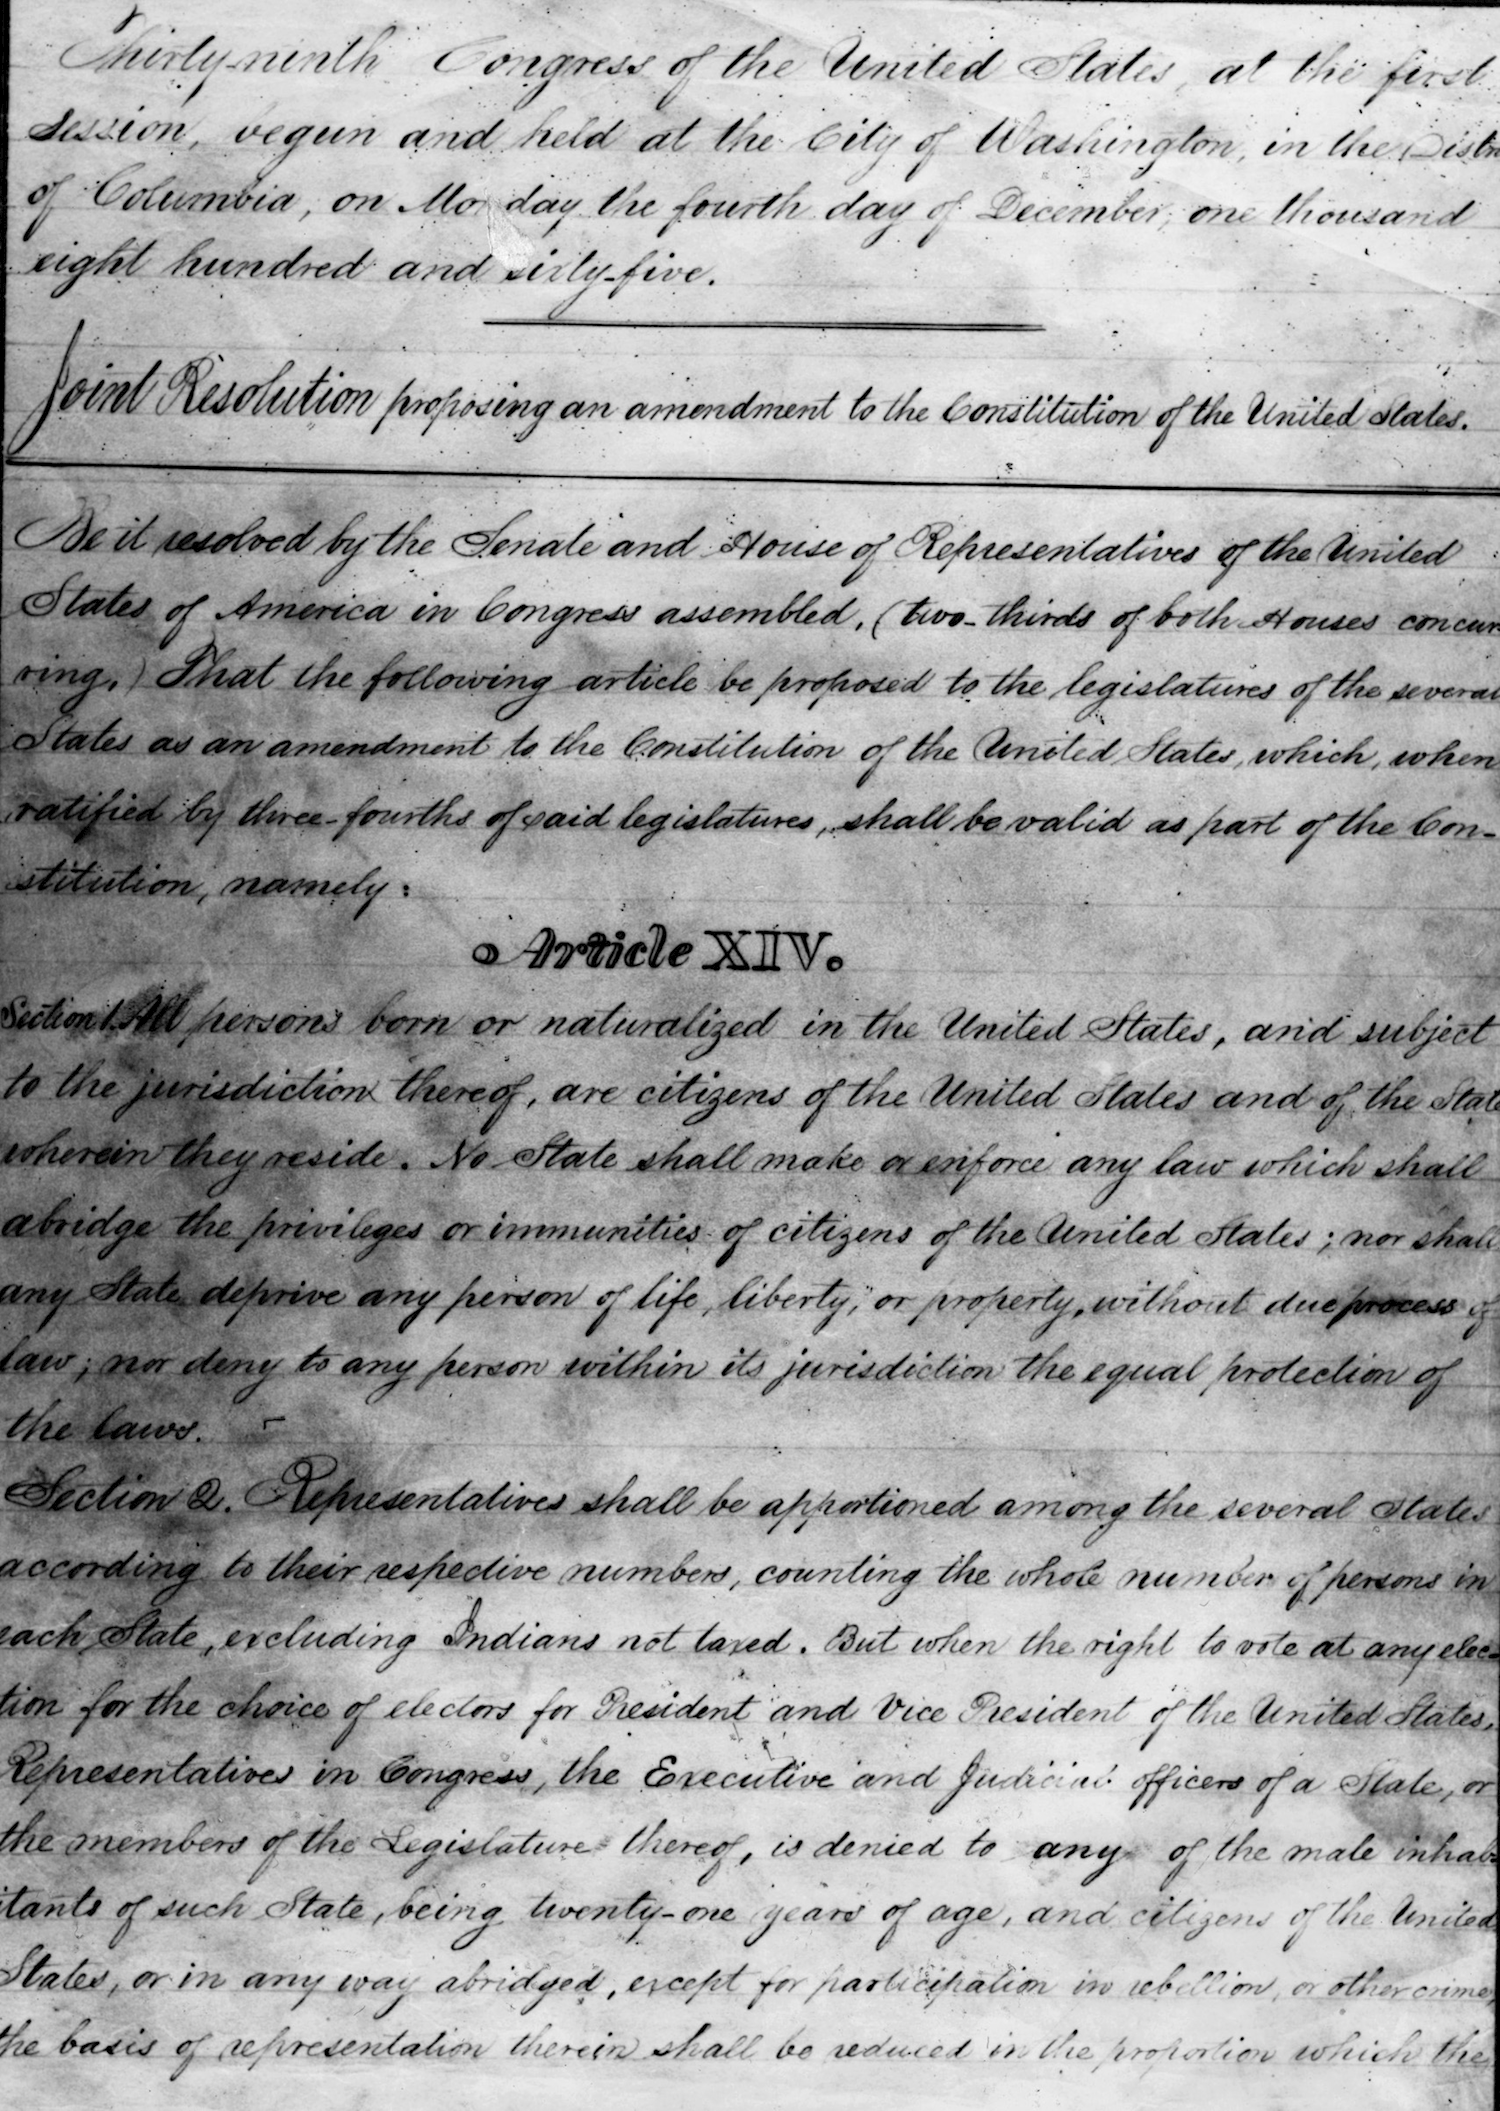 Thirty-ninth Congress of the United States, at the first
session, begun and held at the City of Washington, in the Distri
of Columbia, on Monday the fourth day of December, one thousand
eight hundred and sixty-five.
Joint Resolution proposing an amendment to the Constitution of the United States.
Be it resolved by the Senate and House of Representatives of the United
States of America in Congress assembled, (two-thirds of both Houses concur-
ring,) That the following article be proposed to the legislatures of the several
States as an amendment to the Constitution of the United States, which, when
ratified by three-fourths of said legislatures, shall be valid as part of the Con-
stitution, namely:
Article XIV.
Section 1. All persons born or naturalized in the United States, and subject
to the jurisdiction thereof, are citizens of the United States and of the State
wherein they reside. No State shall make or enforce any law which shall
abridge the privileges or immunities of citizens of the United States; nor shall
any State deprive any person of life, liberty, or property, without due process of
law; nor deny to any person within its jurisdiction the equal protection of
the laws.
Section 2. Representatives shall be apportioned among the several States
according to their respective numbers, counting the whole number of persons in
each State, excluding Indians not taxed. But when the right to vote at any elec-
tion for the choice of electors for President and Vice President of the United States,
Representatives in Congress, the Executive and Judicial officers of a State, or
the members of the Legislature thereof, is denied to any of the male inhab-
itants of such State, being twenty-one years of age, and citizens of the United
States, or in any way abridged, except for participation in rebellion, or other crime,
the basis of representation therein shall be reduced in the proportion which the